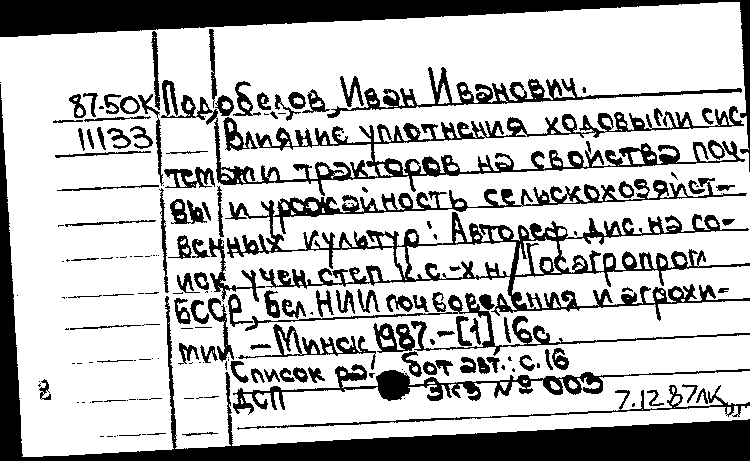 87-50К Подобедов, Иван Иванович.
11133 Влияние уплотнения ходовыми сис-
темами тракторов на свойства поч-
вы и урожайность сельскохозяйст-
венных культур: Автореф. дис. на со-
иск. учен. степ к.с.-х.н. / Госагропром
БССР, Бел. НИИ почвоведения и агрохи-
мии. – Минск 1987. – [1] 16с.
Список ра бот авт.: с. 16
ДСП Экз № 003
7.12.87 ЛК